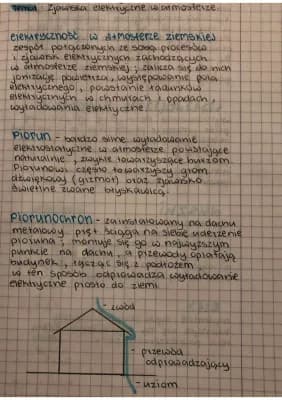 Temat: Zjawiska elektryczne w atmosferze.
elektryczność w atmosferze ziemskiej
zespół połączonych ze sobą procesów
i zjawisk elektrycznych zachodzących
w atmosferze ziemskiej; zalicza się do nich
jonizację powietrza, występowanie pola
elektrycznego, powstanie ładunków
elektrycznych w chmurach i opadach,
wyładowania elektryczne.
Piorun - bardzo silne wyładowanie
elektrostatyczne w atmosferze powstające
naturalnie, zwykle towarzyszące burzom.
Piorunowi często towarzyszy grom
dźwiękowy (grzmot) oraz zjawisko
świetlne zwane błyskawicą.
Piorunochron - zainstalowany na dachu
metalowy pręt ściąga na siebie uderzenie
pioruna; montuje się go w najwyższym
punkcie na dachu, a przewody oplatają
budynek, łącząc się z podłożem,
w ten sposób odprowadza wyładowanie
elektryczne prosto do ziemi.
- zwód
- przewód
odprowadzający
- uziom